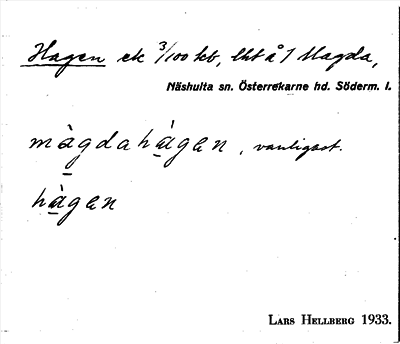 Hagen ek 3/100 kb, lht å 1 Magda,
Näshulta sn. Österrekarne hd. Söderm. l.
màgdahàgen, vanligast.
hàgen
Lars Hellberg 1933.